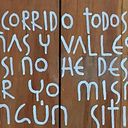 CORRIDO TODOS
ÑAS Y VALLES
SI NO HE DES
R YO MISM
NGÚN SITI